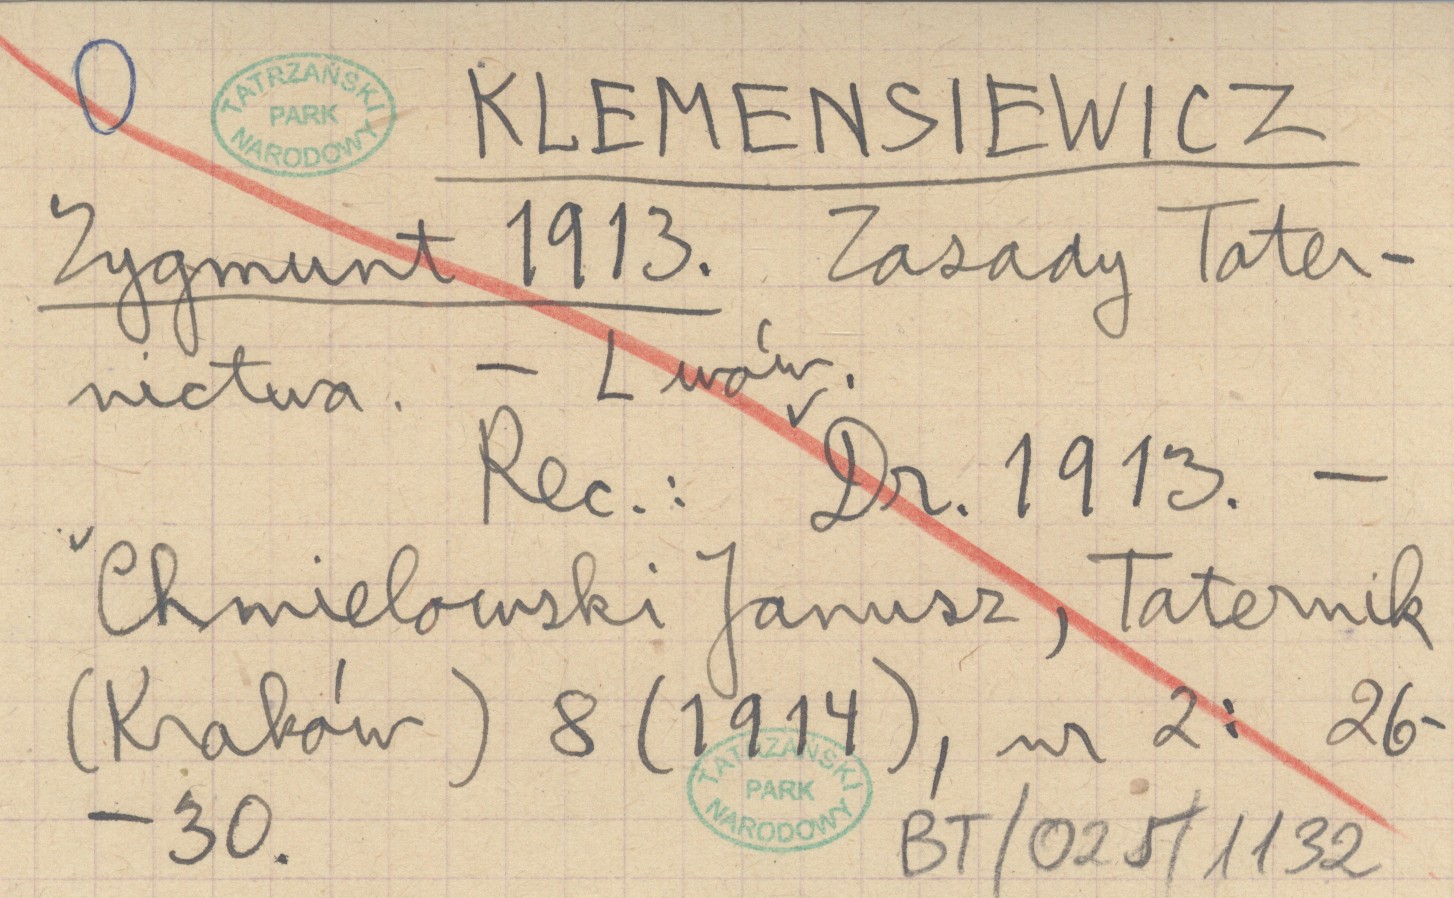 TATRZAŃSKI PARK NARODOWY
KLEMENSIEWICZ
Zygmunt 1913. Zasady Tater-
nictwa. – Lwów.
Rec.: Dr. 1913. –
Chmielowski Janusz, Taternik
(Kraków) 8 (1914), nr 2: 26-
–30.
TATRZAŃSKI PARK NARODOWY
BT/025/1132